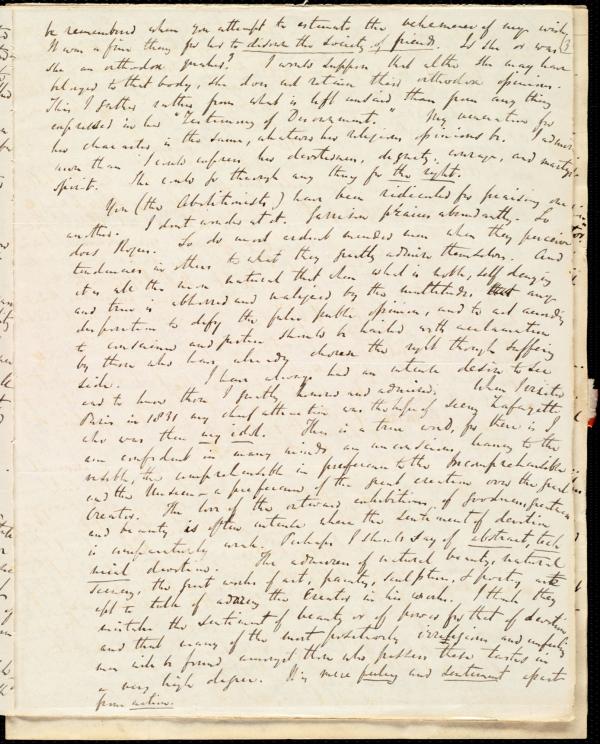 be remembered when you attempt to estimate the vehemence of my wish.
It was a fine thing for her to disown the Society of friends. Is she or was (3
she an orthodox quaker? I would suppose that altho she may have
belonged to that body, she does not retain their orthodox opinions.
This I gather rather from what is left unsaid than from any thing
expressed in her "Testimony of Disownment." My veneration for
her character is the same, whatever her religious opinions be. I admire
more than I could express her devotedness, dignity, courage, and martyr
spirit. She could go through any thing for the right.
You (the Abolitionists) have been ridiculed for praising one
another. I dont wonder at it. Garrison praises abundantly. So
does Rogers. So do most ardent minded men when they perceive
tendencies in others to what they greatly admire themselves. And
it is all the more natural that when what is noble, self denying
and true is abhorred and maligned by the multitude, any
disposition to defy the false public opinion, and to act according
to conscience and justice should be hailed with acclamation
by those who have already chosen the right though suffering
side. I have always had an intense desire to see
and to know those I greatly honored and admired. When I visited
Paris in 1831 my chief attraction was the hope of seeing Lafayette
who was then my idol. This is a true word, for there is I
am confident in many minds an unconscious leaning to the
visible, the comprehensible in preference to the Incomprehensible
and the Unseen - a preference of the great creation over the great
Creator. The love of the outward exhibitions of goodness, greatness
and beauty is often intense where the sentiment of devotion
is comparatively weak. Perhaps I should say of abstract, tech
nical devotion. The admirers of natural beauty, natural
scenery, the great works of art, painting, sculpture, & poetry, are
apt to talk of adoring the Creator in his works. I think they
mistake the sentiment of beauty or of power for that of devotion
and that many of the most positively irreligious and unfeeling
men will be found amongst those who possess these tastes in
a very high degree. It is mere feeling and sentiment apart
from action.